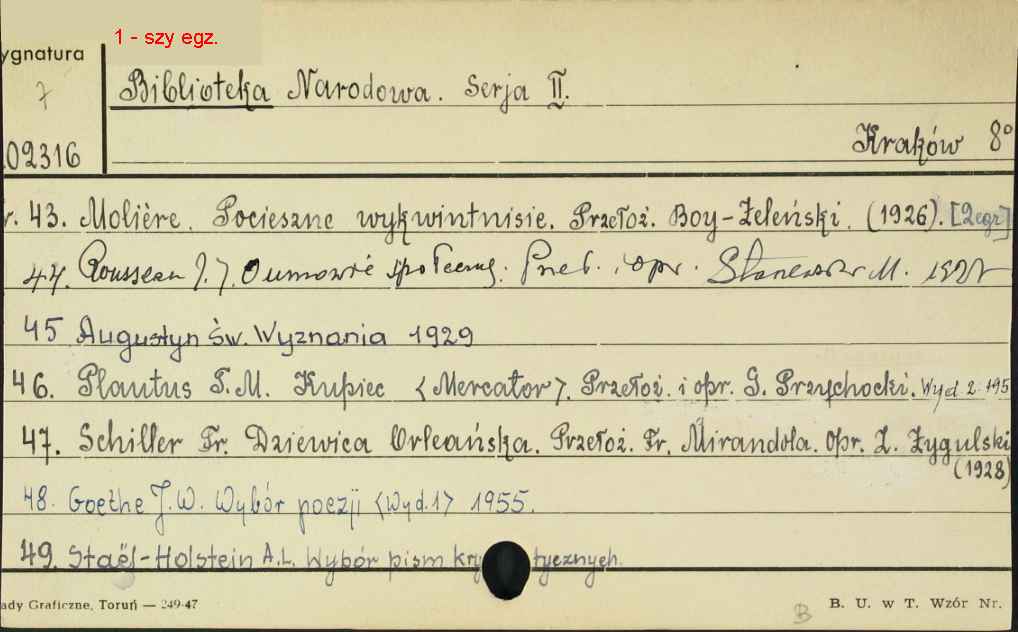 1 - szy egz.
ygnatura
7
Biblioteka Narodowa. Serja II.
02316
Kraków 8°
r. 43. Molière. Pocieszne wykwintnisie. Przełoż. Boy-Żeleński. (1926). [2egz]
44. Rousseau J. J. O umowie społecznej. Przeł. i opr. M. 1927
45 Augustyn Św. Wyznania 1929
46. Plautus T. M. Kupiec <Mercator>. Przełoż. i opr. G. Przychocki. Wyd 2 195
47. Schiller Fr. Dziewica Orleańska. Przełoż. Fr. Mirandola. Opr. Z. Żygulski
(1928)
48. Goethe J. W. Wybór poezji <Wyd. 1> 1955.
49. Staël-Holstein A. L. Wybór pism kry tycznych.
ady Graficzne, Toruń — 249-47
B
B. U. w T. Wzór Nr.